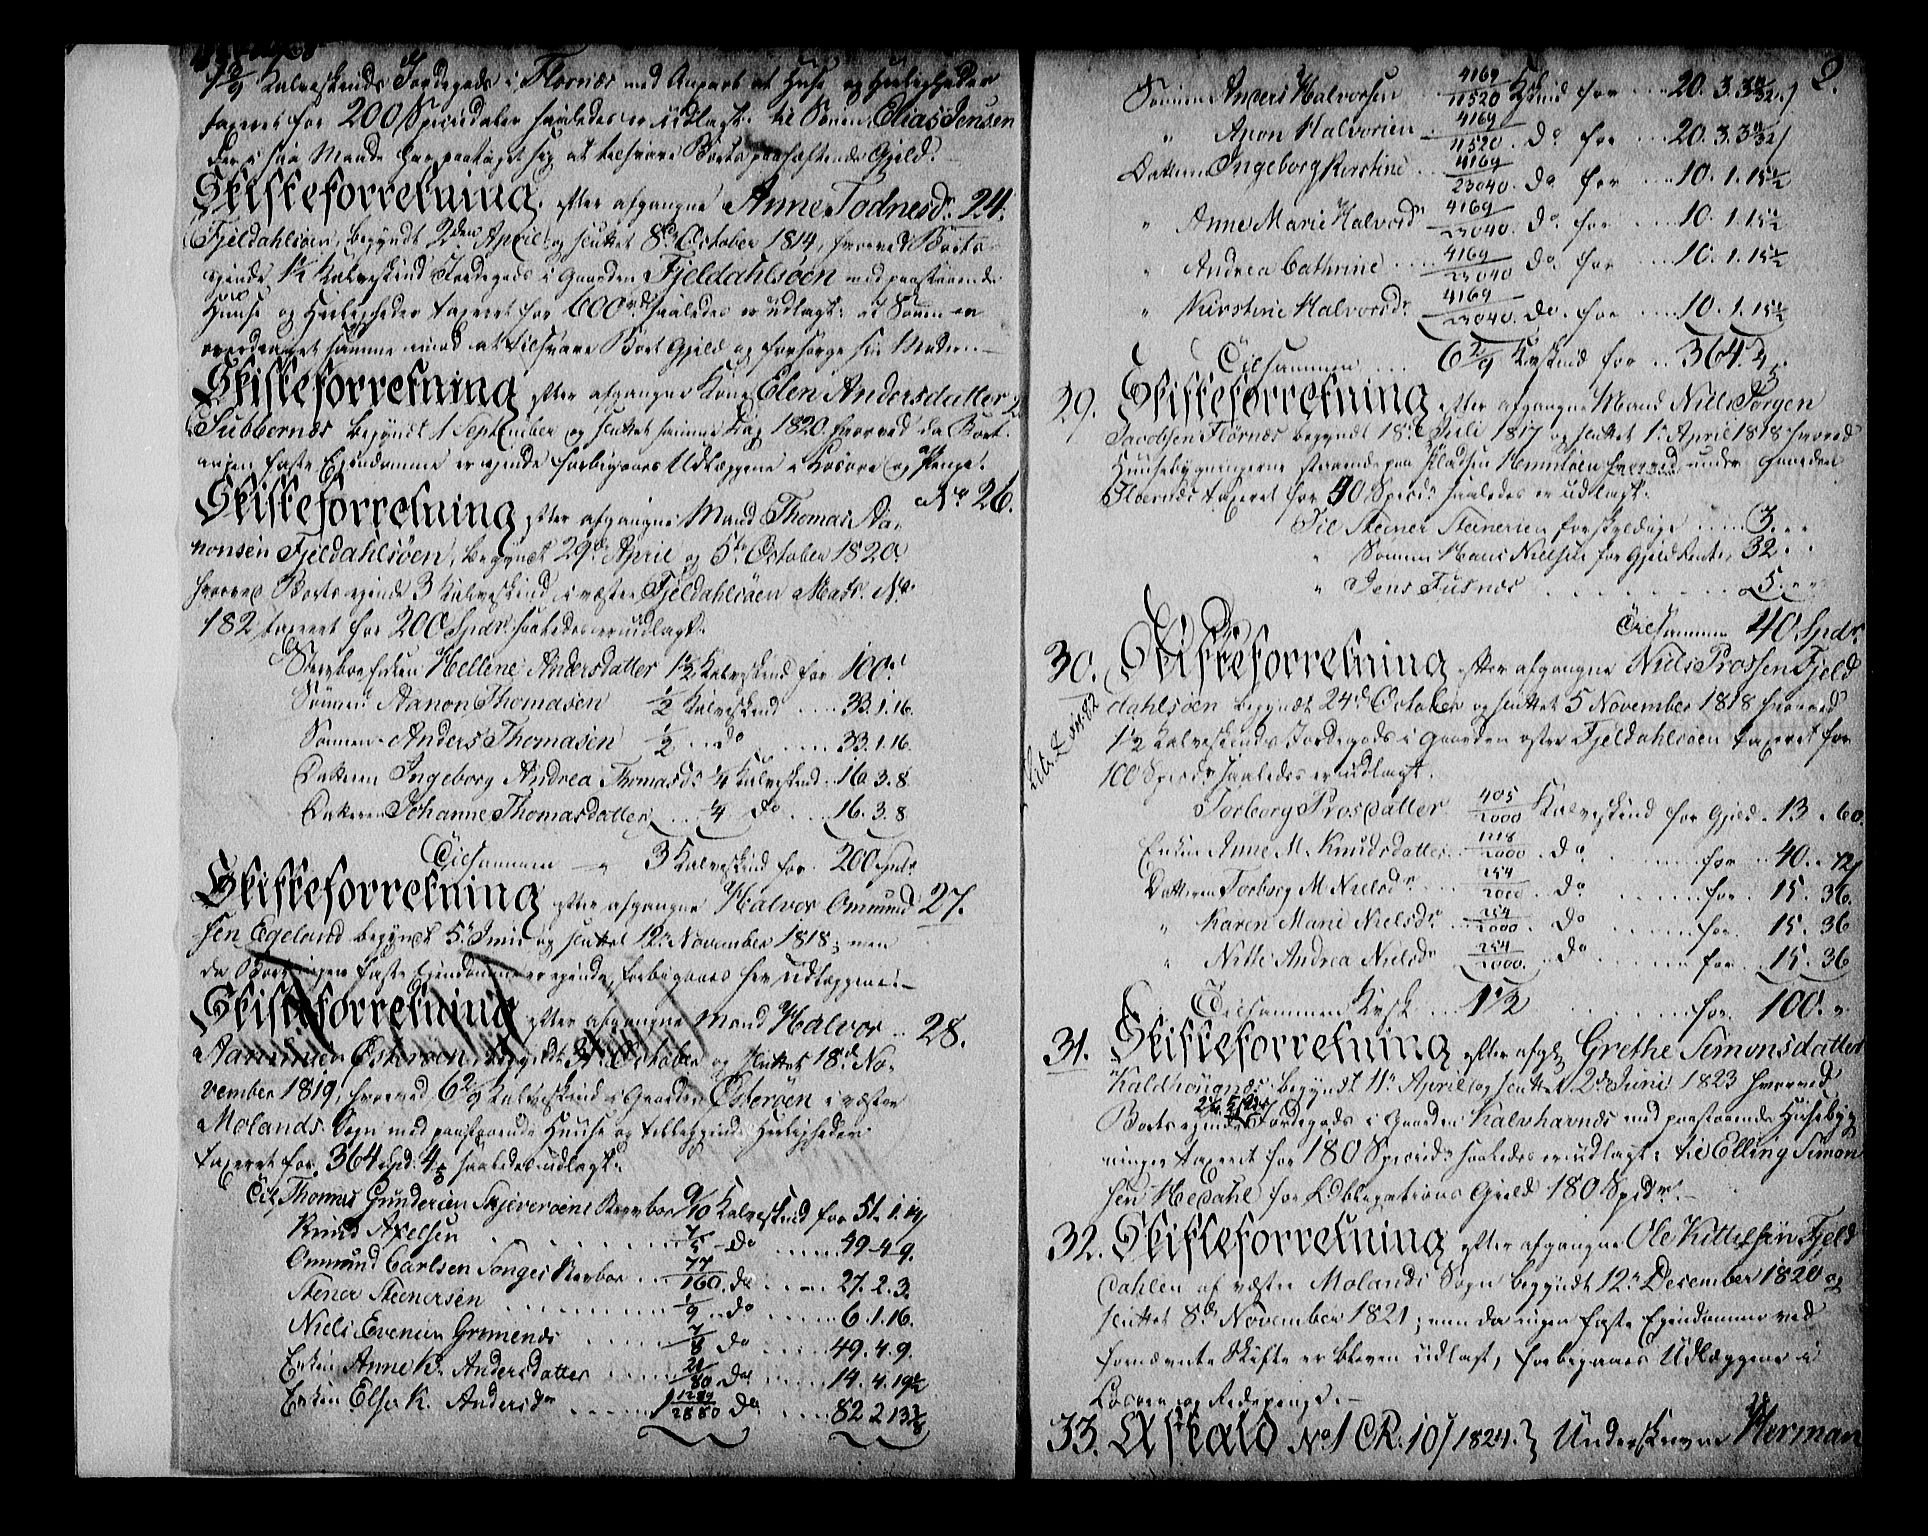 Kalveskinds Jordegods i Flosnæs med Aaverk at Huse og Herligheder
taxeret for 200 Speciedaler saaledes er udlagt: til Sønnen Elias Jensen
der i saa Maade har paataget sig at tilsvare Boets paahæftende Gjeld.
Skifteforretning efter afgangne Anne Todnesdr. 24.
Fjeldahlsöen, begyndt 2den April og sluttet 8de October 1814, hvorved Boets
ejende 1½ Kalveskind Jordegods i Gaarden Fjeldahlsöen med paastaaende
Huuse og Herligheder taxeret for 600rd saaledes er udlagt: at Sønnen er
overdraget samme imod at tilsvare Boets Gjeld og forsørge sin Moder.
Skifteforretning efter afgangne Kone Elen Andersdatter 2
Tubbernæs begyndt 1 September og sluttet samme Dag 1820 hvorved da Boet
ingen faste Ejendomme er ejende forbigaaes Udlæggene i Løsøre og Penge.
Skifteforretning efter afgangne Mand Thomas Aa- No 26.
nonsen Fjeldahlsöen, begyndt 29de April og 5te October 1820
hvorved Boets ejende 3 Kalveskind i vestre Fjeldahlsöen Matr. No
182 taxeret for 200 Spdr. saaledes er udlagt:
Stervboe Enken Hellene Andersdatter 1½ Kalveskind for 100.
Sønnen Aanon Thomasen ½ Kalveskind .... 33.1.16.
Sønnen Anders Thomasen ½ do ..... 33.1.16.
Datteren Ingeborg Andrea Thomasdr ¼ Kalveskind. 16.3.8
Datteren Johanne Thomasdatter .. ¼ do .... 16.3.8
Tilsammen 3 Kalveskind for 200 Spdr.
Skifteforretning efter afgangne Halvor Omund 27.
sen Egeland begyndt 5 Juni og sluttet 12 November 1818; men
da Boet ingen faste Ejendomme er ejende, forbigaaes her Udlæggene.
Skifteforretning efter afgangne Mand Halvor .. 28.
Aanunsen Österöen, begyndt October og sluttet 18d No-
vember 1819, hvorved 6 2/9 Kalveskind i Gaarden Österöen i vestre
Molands Sogn med paastaaende Huuse og tilliggende Herligheder
taxeret for 364 Spd. 4 saaledes udlagt:
Til Thomas Gundersen Skjeveröens Stervboe 9/10 Kalveskind for 51.1.
Knud Axelsen ..... 7/ do ..... 49.4.9.
Omund Carlsen Songes Stervboe .. 77/160 do .... 27.2.3.
Stener Stenersen ........ 1/9 do ..... 6.1.16.
Niels Evensen Gromenæs ..... 7/8 do ..... 49.4.9.
Enken Anne K. Andersdatter ... 21/80 do ... 14.4.19½
Enken Else K. Andersdr ..... 1 1289/2880 do .... 82 2 13
2.
Sønnen Anders Halvorsen 4169/11520 Kskind for ... 20.3.3
" Anon Halvorsen 4169/11520 do for ... 20.3.3
Datteren Ingeborg Kirstine 4169/23040 do for ... 10.1.15½
" Anne Marie Halvorsdr 4169/23040 do for ... 10.1.15½
" Andrea Cathrine ... 4169/23040 do for ... 10.1.15½
" Kirstine Halvorsdr 4169/23040 do for ... 10.1.15½
Tilsammen ... 6 2/9 Kveskind for .. 364.4
29. Skifteforretning efter afgangne Mand Niels Jörgen
Jacobsen Flörnes begyndt 18d Juli 1817 og sluttet 1 April 1818 hvorved
Huusebygningerne staaende paa Pladsen hvorved under Gaarden
Floernes taxeret for 40 Specidr saaledes er udlagt:
Til Steiner Steinersen forskyldige .... 3 . "
" Sønnen Hans Nielsen for Gjeld 32 . "
" Jens Tusnes ......... 5 . "
Tilsammen 40 Spdr.
30. Skifteforretning efter afgangne Niels Prossen Fjeld
dahlsöen begyndt 24d October og sluttet 5 November 1818 hvorved
1½ Kalveskinds Jordegods i Gaarden östre Fjeldahlsöen taxeret for
100 Specidr saaledes er udlagt:
Torborg Prosdatter 405/2000 Kalveskind for Gjeld. 13 . 60
Enken Anne M. Knudsdatter .. 1218/2000 do ..... for .. 40 . 72
Datteren Torborg M Nielsdr ... 254/2000 do ..... for. 15. 36.
" Karen Marie Nielsdr .. 254/2000 do ..... for. 15. 36
" Nille Andrea Nielsdr 254/2000 do ..... for .. 15. 36
Tilsammen Kvsk .. 1½ ..... for. 100. "
31. Skifteforretning efter afg: Grethe Simonsdatter
Kaldhougnes begyndt 11 April og sluttet 2d Juni 1823 hvorved
Boets ejende Jordegods i Gaarden Kalvhavnes med paastaaende Husebyg
ninger taxeret for 180 Specidr saaledes er udlagt: til Elling Simon
sen Hedahl for Obligations Gjeld 180 Spdr.
32. Skifteforretning efter afgangne Ole Kittelsen Fjeld
dahlen af vestre Molands Sogn begyndt 12 December 1820 og
sluttet 8d November 1821; men da ingen faste Ejendomme ved
fornævnte Skifte er bleven udlagt, forbigaaes Udlæggene i
Løsøre og Redepenge.
33. Afkald No 1 CR. 10/ 1824. } Underskrevne Herman